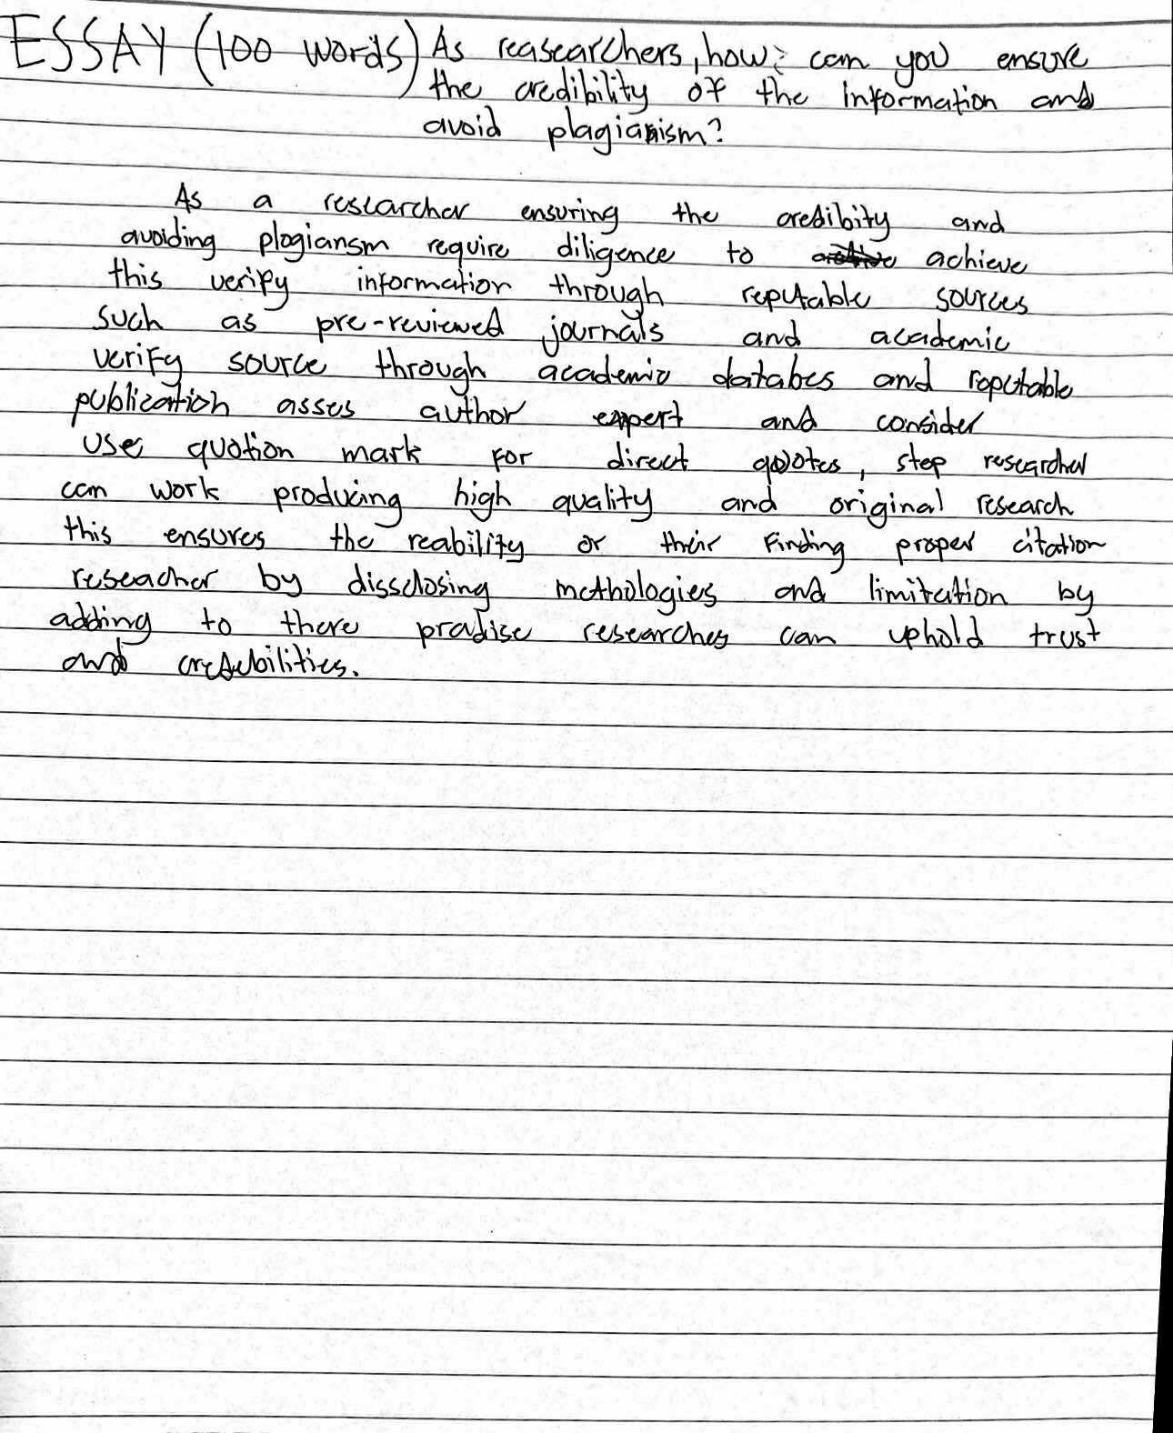 ESSAY (100 words) As reasearchers, how can you ensure
the credibility of the information and
avoid plagiarism?
As a researcher ensuring the credibity and
avoiding plogiarism require diligence to achieve
this verify information through reputable sources
such as pre-reviewed journals and academic
verify source through academic databes and reputable
publication asses author expert and consider
use quotion mark for direct quotes, step researcher
can work producing high quality and original research
this ensures the reability or their finding proper citation
reseacher by dissclosing methologies and limitation by
adding to there pradise researches can uphold trust
and credubilities.